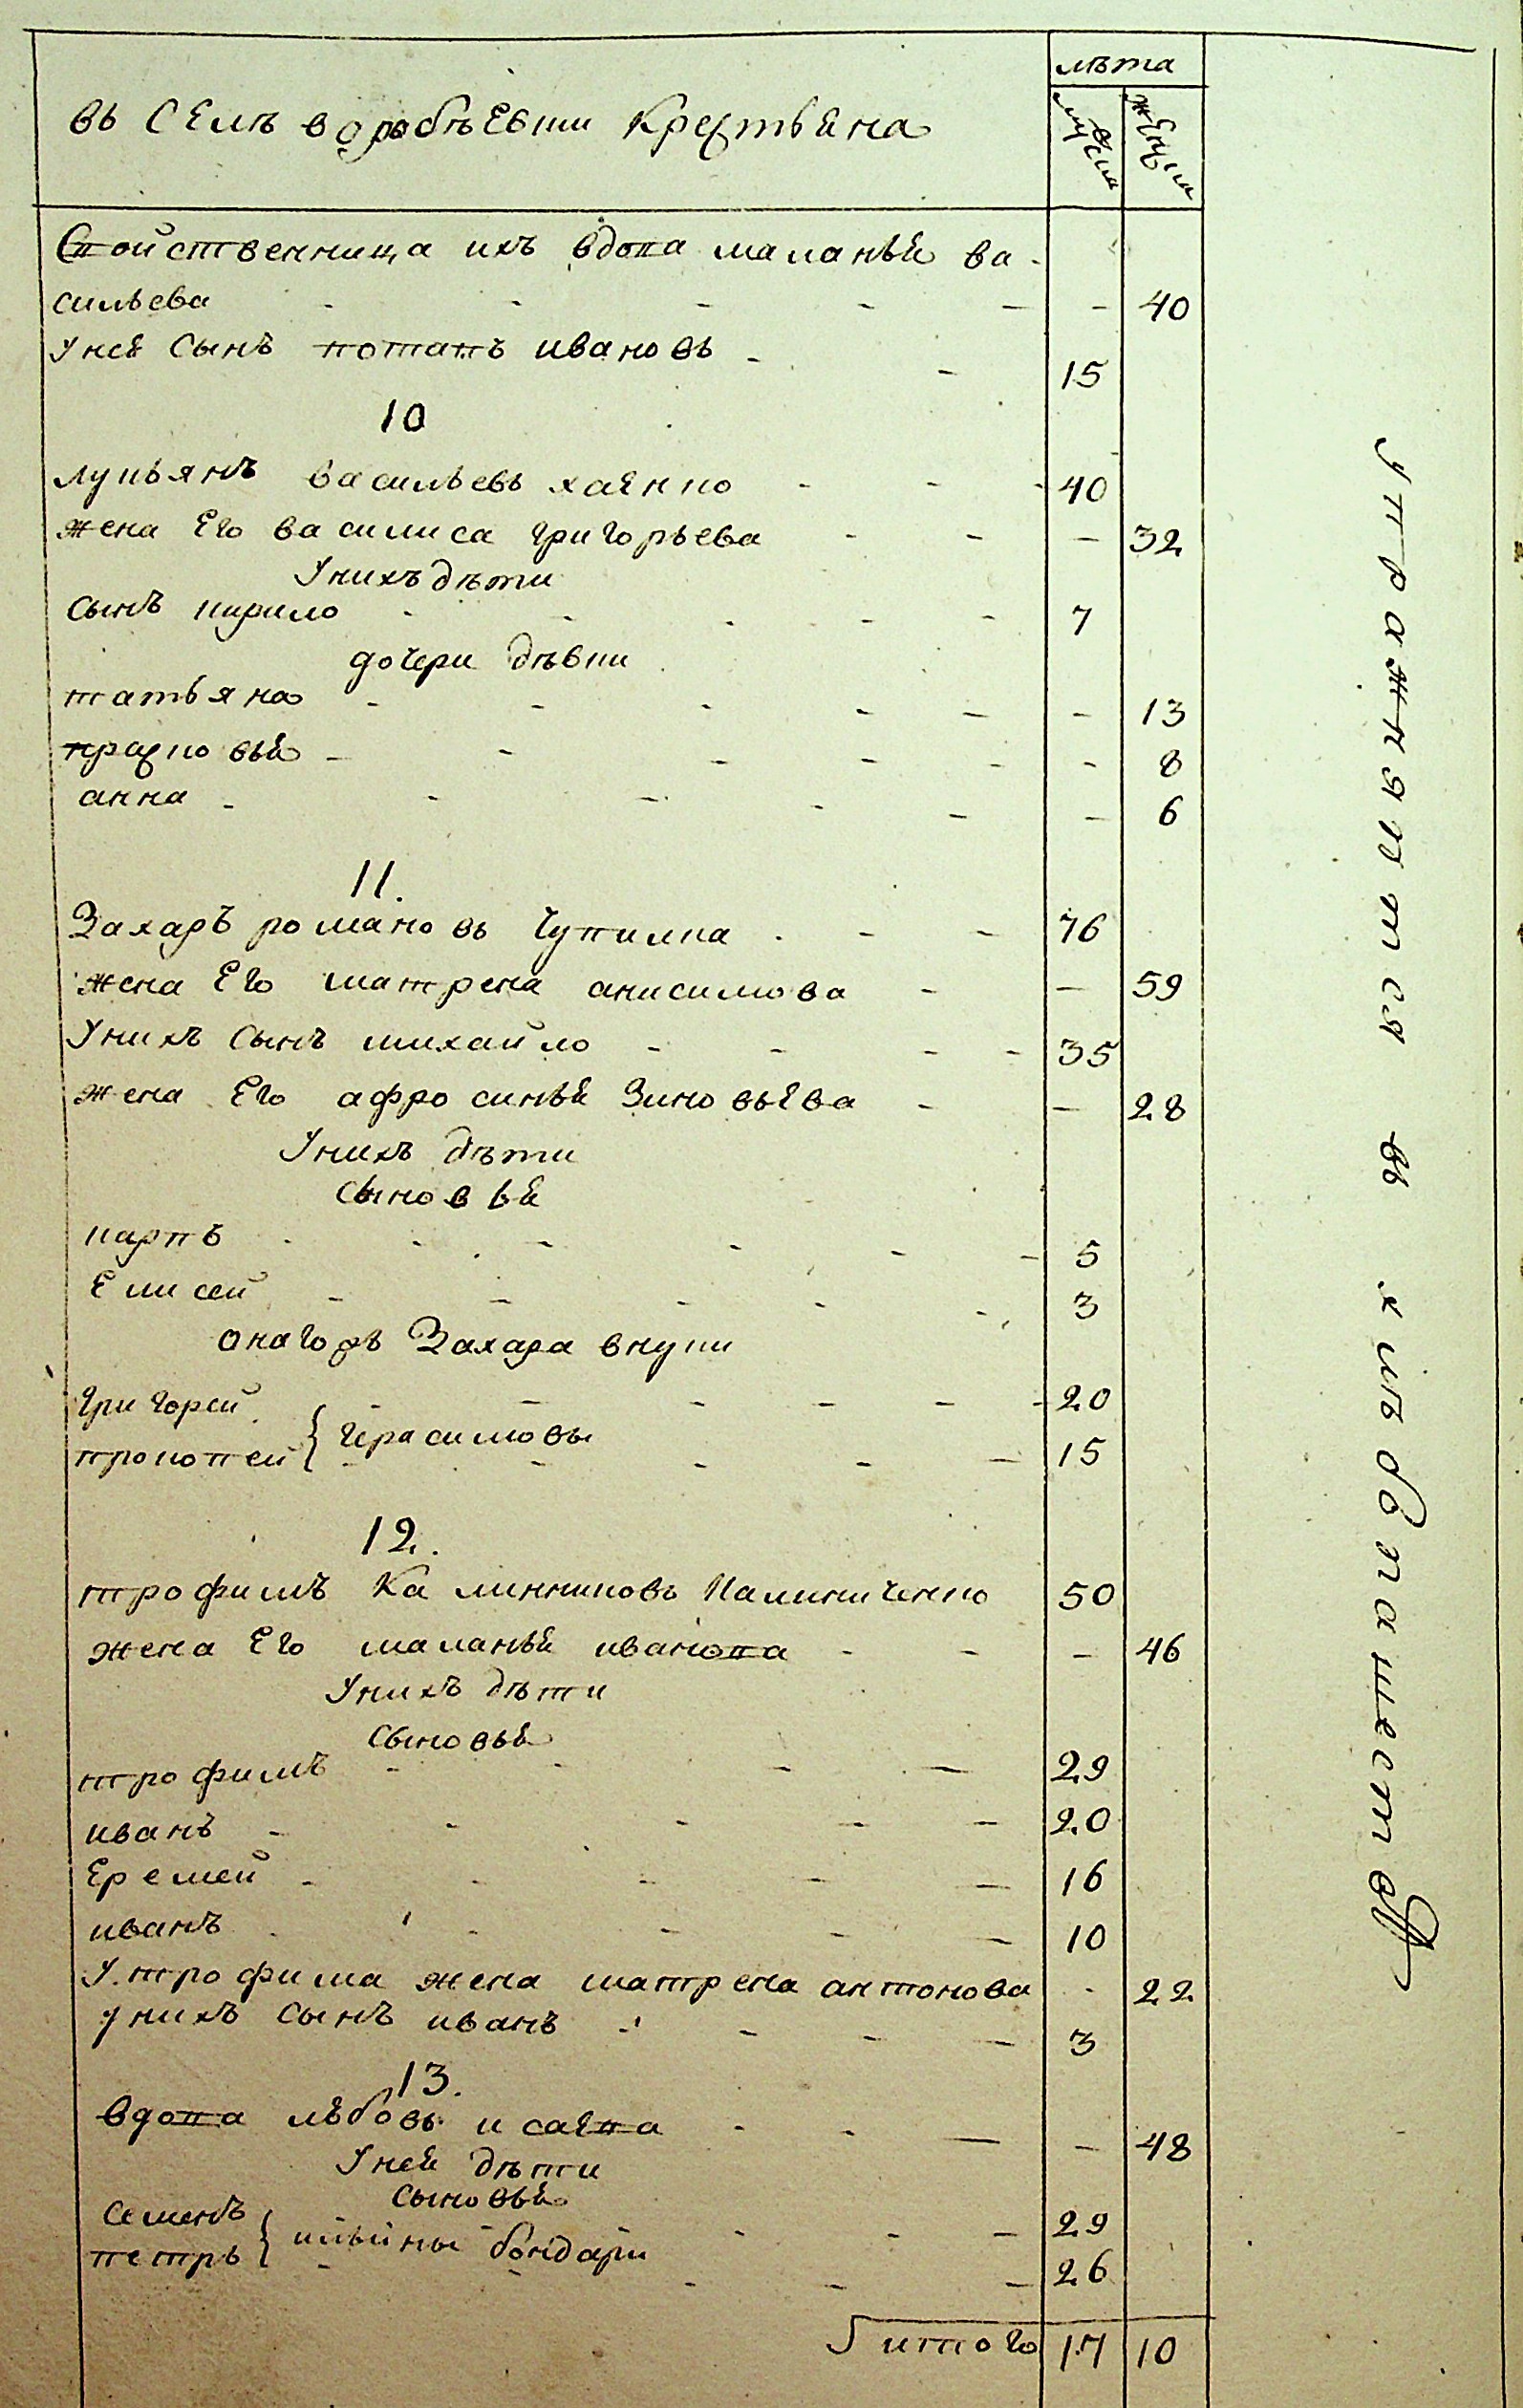 въ Селѣ воробъевки Крестьяна
лѣта
мужи
женщи
Свойственница ихъ вдова маланья ва-
сильева - - - - - - 40
у неё Сынъ потапъ ивановъ - - 15
10
лукьянъ васильевъ хаенко - - - 40
жена Его василиса григорьева - - - 32
у нихъ дѣти
Сынъ кирило - - - - - 7
дочери дѣвки
татьяна - - - - - - 13
прасковья - - - - - - 8
анна - - - - - - 6
11.
Захаръ романовъ Чупилка - - - 76
жена Его матрена анисимова - - 59
у нихъ Сынъ михайло - - - - 35
жена Его афросинья Зиновьева - - 28
у нихъ дѣти
Сыновья
карпъ - - - - - - 5
Елисей - - - - - 3
онагожъ Захара внуки
григорей - - - - - - 20
прокопей } герасимовы - - - - - 15
12.
трофимъ Калинниковъ Калиниченко 50
жена Его маланья иванова - - - 46
у нихъ дѣти
Сыновья
трофимъ - - - - 29
иванъ - - - - - 20
Еремей - - - - - 16
иванъ - - - - - 10
у трофима жена матрена антонова - 22
у нихъ Сынъ иванъ - - - - 3
13.
вдова любовь исаева - - - - 48
у неи дѣти
Сыновья
Семенъ - - - 29
петръ } ильины бондари - - - - - 26
итого 17 10
упражняются въ хлѣбопашествѣ